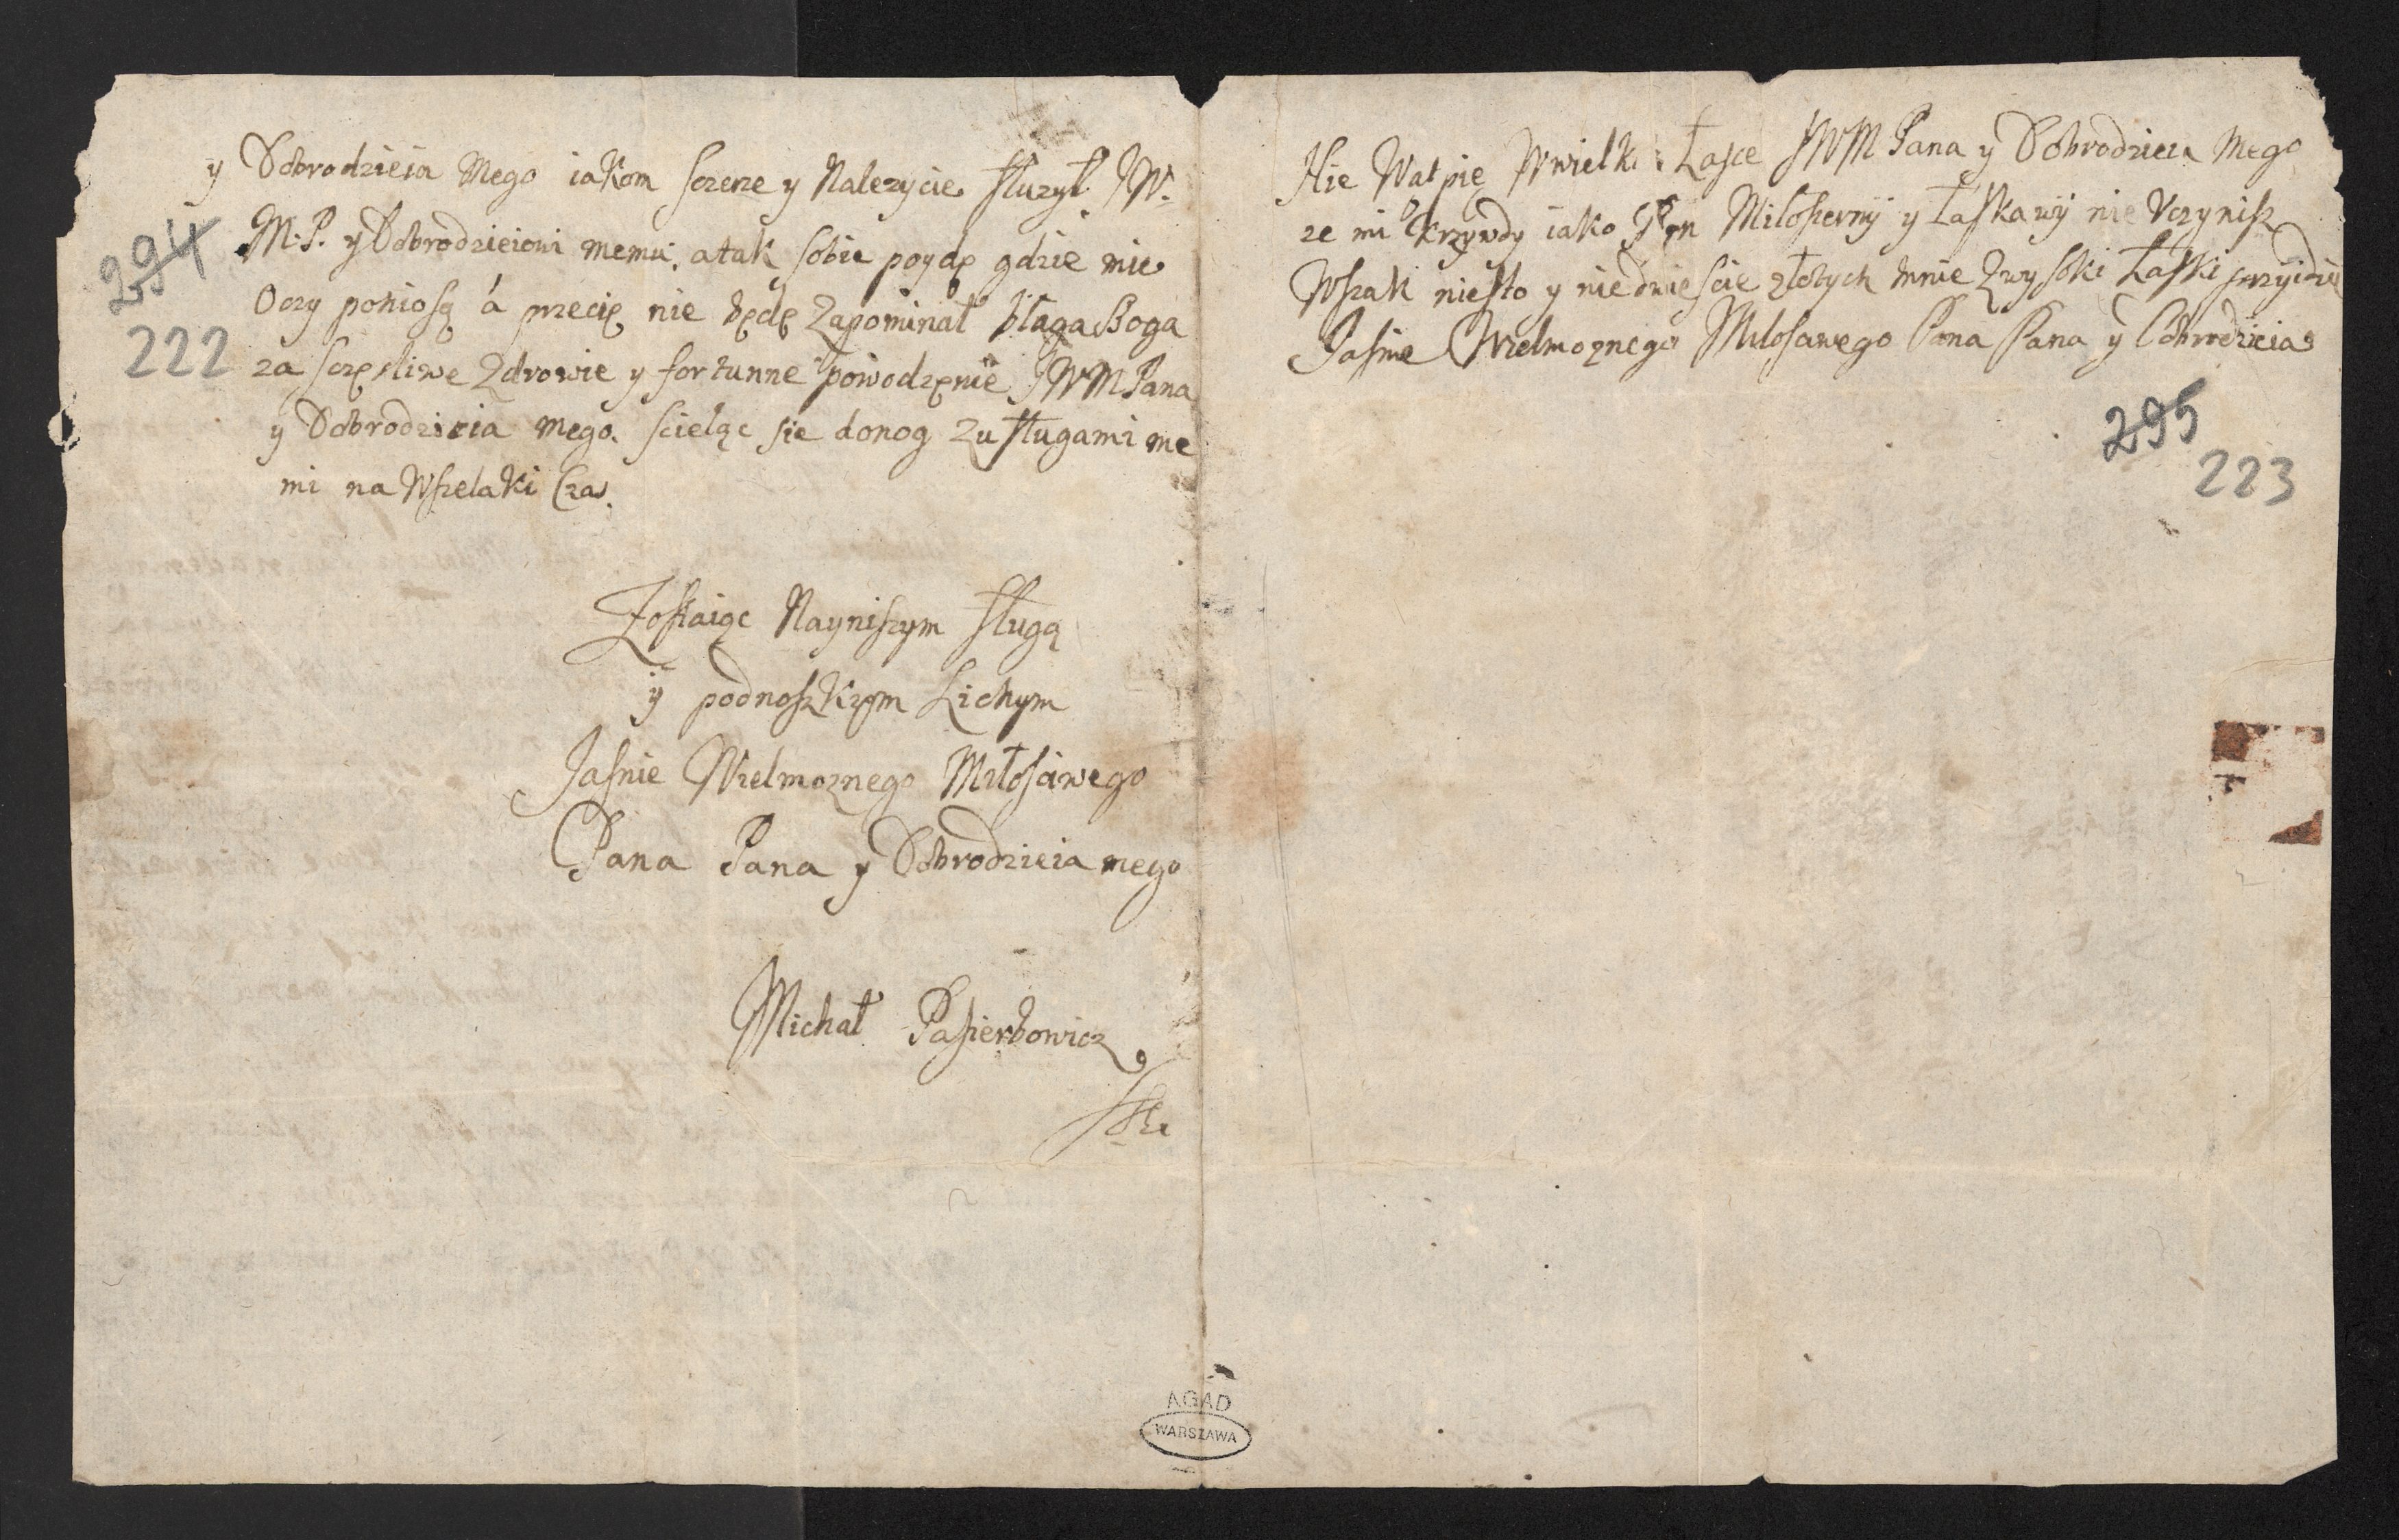 y Dobrodzieia Mego iakom sczerze y Nalezycie słuzył JW.
M. P. y Dobrodzieiowi memu, a tak sobie poydę gdzie mie
Oczy poniosą á przecię nie będę Zapominał błaga Boga
za sczęsliwe Zdrowie y fortunne powodzęnie JWM Pana
y Dobrodzieia mego. scieląc sie donog Zusługami me
mi na Wszelaki Czas.
Zostaiąc Nayniszym sługą
ÿ podnoszkęm Lichym
Jasnie Wielmoznego Miłosciwego
Pana Pana y Dobrodzieia mego
Michał Pasierbowicz
294
222
Nie Watpię Wwielki Łasce JWM Pana y Dobrodzieia Mego
ze mi krzywdy iako Pan Miłosierny y Łaskawÿ nie Vczynisz
Wszak niesto y niedwiescie złotych mnie Zwysoki Łaski przÿidzie
Jasnie Wielmoznego Miłosciwego Pana Pana ÿ Dobrodzieia
295
223
AGAD
WARSZAWA